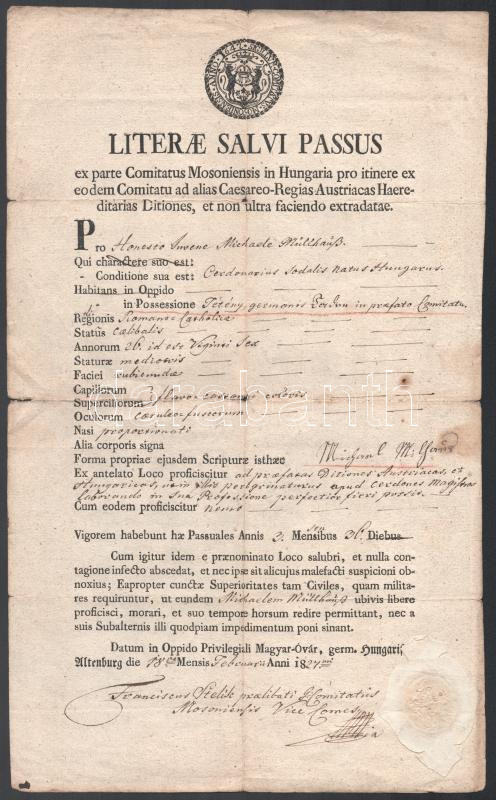 LITERÆ SALVI PASSUS
ex parte Comitatus Mosoniensis in Hungaria pro itinere ex
eodem Comitatu ad alias Caesareo-Regias-Austriacas Haere-
ditarias Ditiones, et non ultra faciendo extradatae.
Pro Honesto Juvene Michaele Müllhäuß
Qui charactere suo est:
Conditione sua est: Cerdonarius Sodalis natus Hungarus
Habitans in Oppido
in Possessione Tétény, germanis in præfato Comitatu
Regionis Romano Catholicæ
Statûs cælibalis
Annorum 26. id est Viginti Sex
Staturæ mediocris
Faciei rubicundæ
Capillorum
Superciliorum flavo coloris
Oculorum cæruleo fuscorum
Nasi proportionati
Alia corporis signa
Forma propriæ ejusdem Scripturæ isthæc Michael
Ex antelato Loco proficiscitur ad præfatas Ditiones Austriacas, et
Hungaricas, peregrinaturus apud Cerdones Magistros
laborando in Sua Professione perfectior fieri possit.
Cum eodem proficiscitur nemo
Vigorem habebunt hæ Passuales Annis 3. Mensibus 36. Diebus
Cum igitur idem e prænominato Loco salubri, et nulla con-
tagione infecto abscedat, et nec ipse sit alicujus malefacti suspicioni ob-
noxius; Eapropter cunctæ Superioritates tam Civiles, quam milita-
res requiruntur, ut eundem Michaelem Müllhäuß ubivis libere
proficisci, morari, et suo tempore horsum redire permittant, nec a
suis Subalternis illi quodpiam impedimentum poni sinant.
Datum in Oppido Privilegiali Magyar-Óvár, germ. Hungariſ.
Altenburg die 18 Mensis Februarii Anni 1827
Franciscus Stelik prælibati Comitatûs
Mosoniensis Vice Comes
darabanth